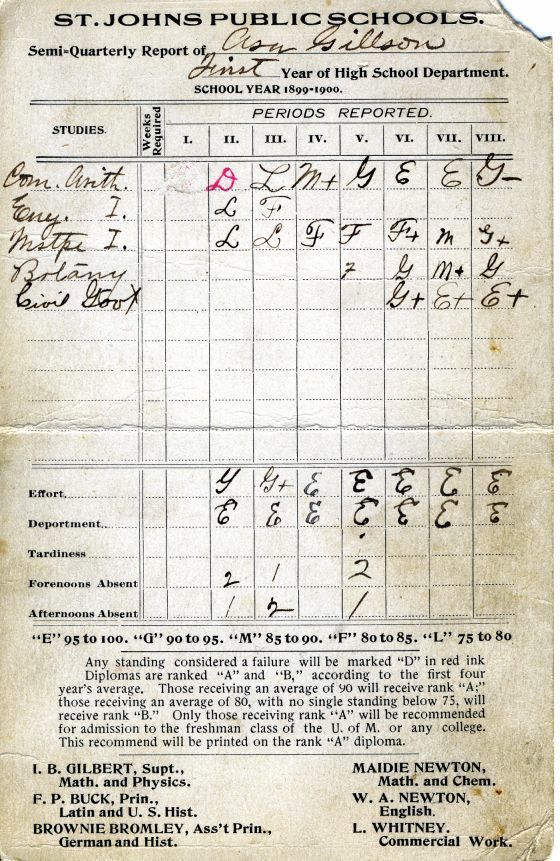 ST. JOHNS PUBLIC SCHOOLS.
Semi-Quarterly Report of Asa Gillson
First Year of High School Department.
SCHOOL YEAR 1899-1900.
STUDIES. Weeks Required PERIODS REPORTED.
I. II. III. IV. V. VI. VII. VIII.
Com. Arith. D L M+ G E E G-
Eng. I. L F
I. L L F F F+ M G+
Botany F G M+ G
Civil Gov't G+ E+ E+
Effort G G+ E E E E E
Department E E E E E E E
Tardiness
Forenoons Absent 2 1 2
Afternoons Absent 1 2 1
"E" 95 to 100. "G" 90 to 95. "M" 85 to 90. "F" 80 to 85. "L" 75 to 80
Any standing considered a failure will be marked "D" in red ink
Diplomas are ranked "A" and "B," according to the first four
year's average. Those receiving an average of 90 will receive rank "A;"
those receiving an average of 80, with no single standing below 75, will
receive rank "B." Only those receiving rank "A" will be recommended
for admission to the freshman class of the U. of M. or any college.
This recommend will be printed on the rank "A" diploma.
I. B. GILBERT, Supt.,
Math. and Physics.
F. P. BUCK, Prin.,
Latin and U. S. Hist.
BROWNIE BROMLEY, Ass't Prin.,
German and Hist.
MAIDIE NEWTON,
Math. and Chem.
W. A. NEWTON,
English.
L. WHITNEY.
Commercial Work.